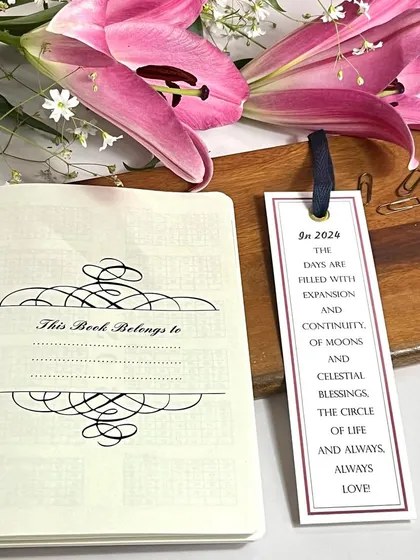 This Book Belongs to
In 2024
THE
DAYS ARE
FILLED WITH
EXPANSION
AND
CONTINUITY,
OF MOONS
AND
CELESTIAL
BLESSINGS,
THE CIRCLE
OF LIFE
AND ALWAYS,
ALWAYS
LOVE!